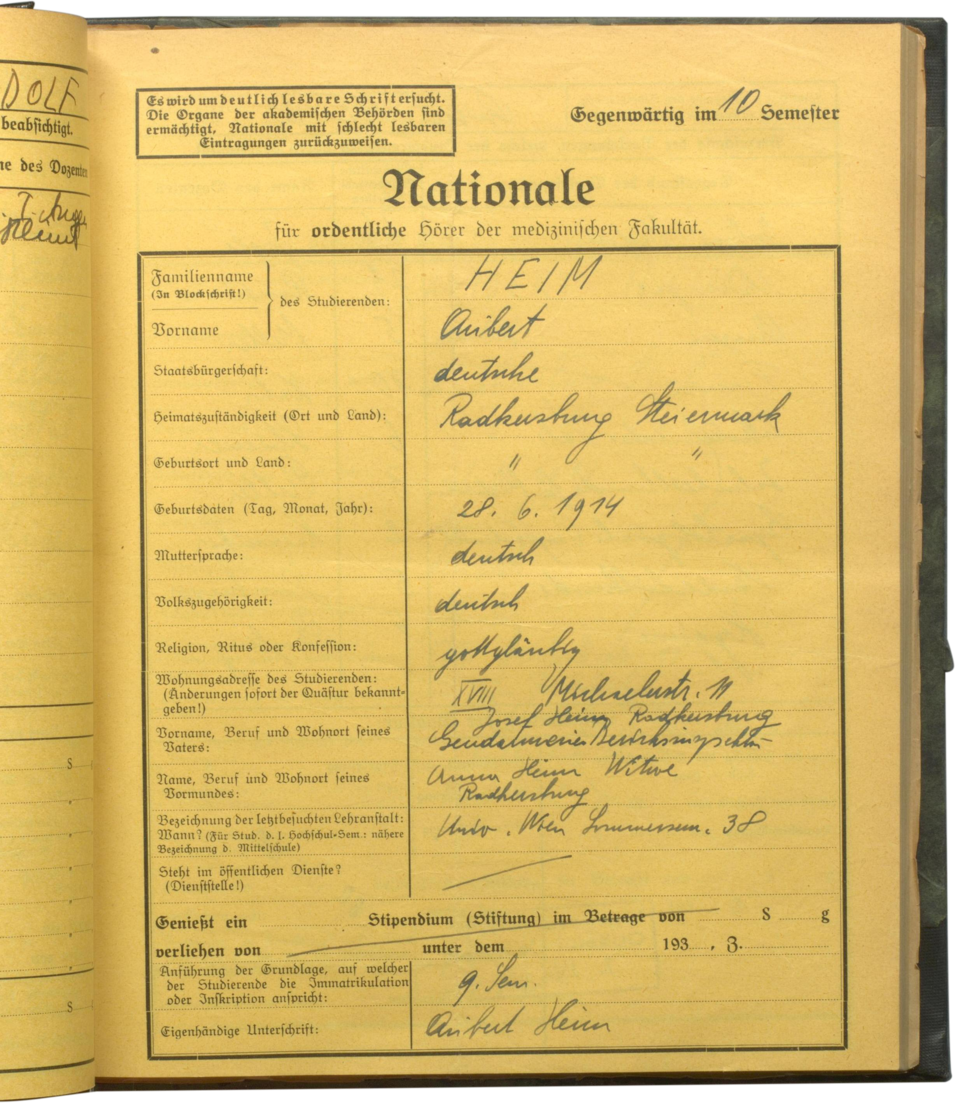 DOLF
beabsichtigt.
ne des Dozenten
S
S
Es wird um deutlich lesbare Schrift ersucht.
Die Organe der akademischen Behörden sind
ermächtigt, Nationale mit schlecht lesbaren
Eintragungen zurückzuweisen.
Gegenwärtig im 10 Semester
Nationale
für ordentliche Hörer der medizinischen Fakultät.
Familienname
(In Blockschrift!)
des Studierenden: HEIM
Vorname Aribert
Staatsbürgerschaft: deutsche
Heimatszuständigkeit (Ort und Land): Radkersburg Steiermark
Geburtsort und Land: " "
Geburtsdaten (Tag, Monat, Jahr): 28. 6. 1914
Muttersprache: deutsch
Volkszugehörigkeit: deutsch
Religion, Ritus oder Konfession: gottgläubig
Wohnungsadresse des Studierenden: XVIII Michaelerstr. 11
(Änderungen sofort der Quästur bekannt-
geben!)
Josef Heim Radkersburg
Vorname, Beruf und Wohnort seines
Vaters: Gendarmerie
Name, Beruf und Wohnort seines Anna Heim Witwe
Vormundes: Radkersburg
Bezeichnung der letztbesuchten Lehranstalt: Univ. Wien Sommersem. 38
Wann? (Für Stud. d. I. Hochschul-Sem.: nähere
Bezeichnung d. Mittelschule)
Steht im öffentlichen Dienste?
(Dienststelle!)
Genießt ein Stipendium (Stiftung) im Betrage von S g
verliehen von unter dem 193 , Z.
Anführung der Grundlage, auf welcher
der Studierende die Immatrikulation 9. Sem.
oder Inskription anspricht:
Eigenhändige Unterschrift: Aribert Heim